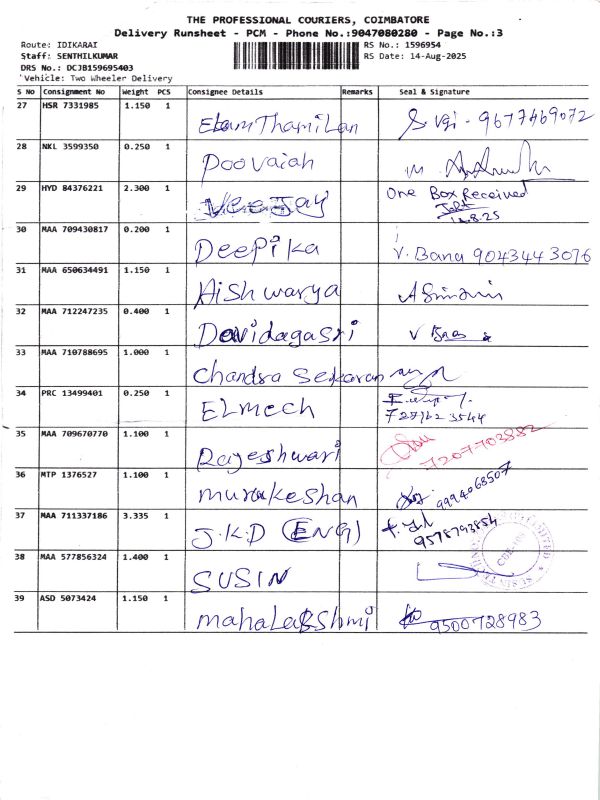 THE PROFESSIONAL COURIERS, COIMBATORE
Delivery Runsheet - PCM - Phone No.:9047080280 - Page No.:3
Route: IDIKARAI
RS No.: 1596954
Staff: SENTHILKUMAR
RS Date: 14-Aug-2025
DRS No.: DCJB159695403
Vehicle: Two Wheeler Delivery
S No Consignment No Weight PCS Consignee Details Remarks Seal & Signature
27 HSR 7331985 1.150 1 Elam Thamilan S. Vgi - 9677469072
28 NKL 3599350 0.250 1 Poovaiah
29 HYD 84376221 2.300 1 Veejay One Box Received
30 MAA 709430817 0.200 1 Deepika V. Bana 9043443076
31 MAA 650634491 1.150 1 Aishwarya
32 MAA 712247235 0.400 1 Davidagasri V
33 MAA 710788695 1.000 1 Chandra Sekaran
34 PRC 13499401 0.250 1 Elmech
35 MAA 709670770 1.100 1 Rajeshwari 7207703882
36 MTP 1376527 1.100 1 murukeshan 9994068507
37 MAA 711337186 3.335 1 J.K.D (ENG) 9578793854
38 MAA 577856324 1.400 1 SUSIN
39 ASD 5073424 1.150 1 mahalakshmi 9500728983